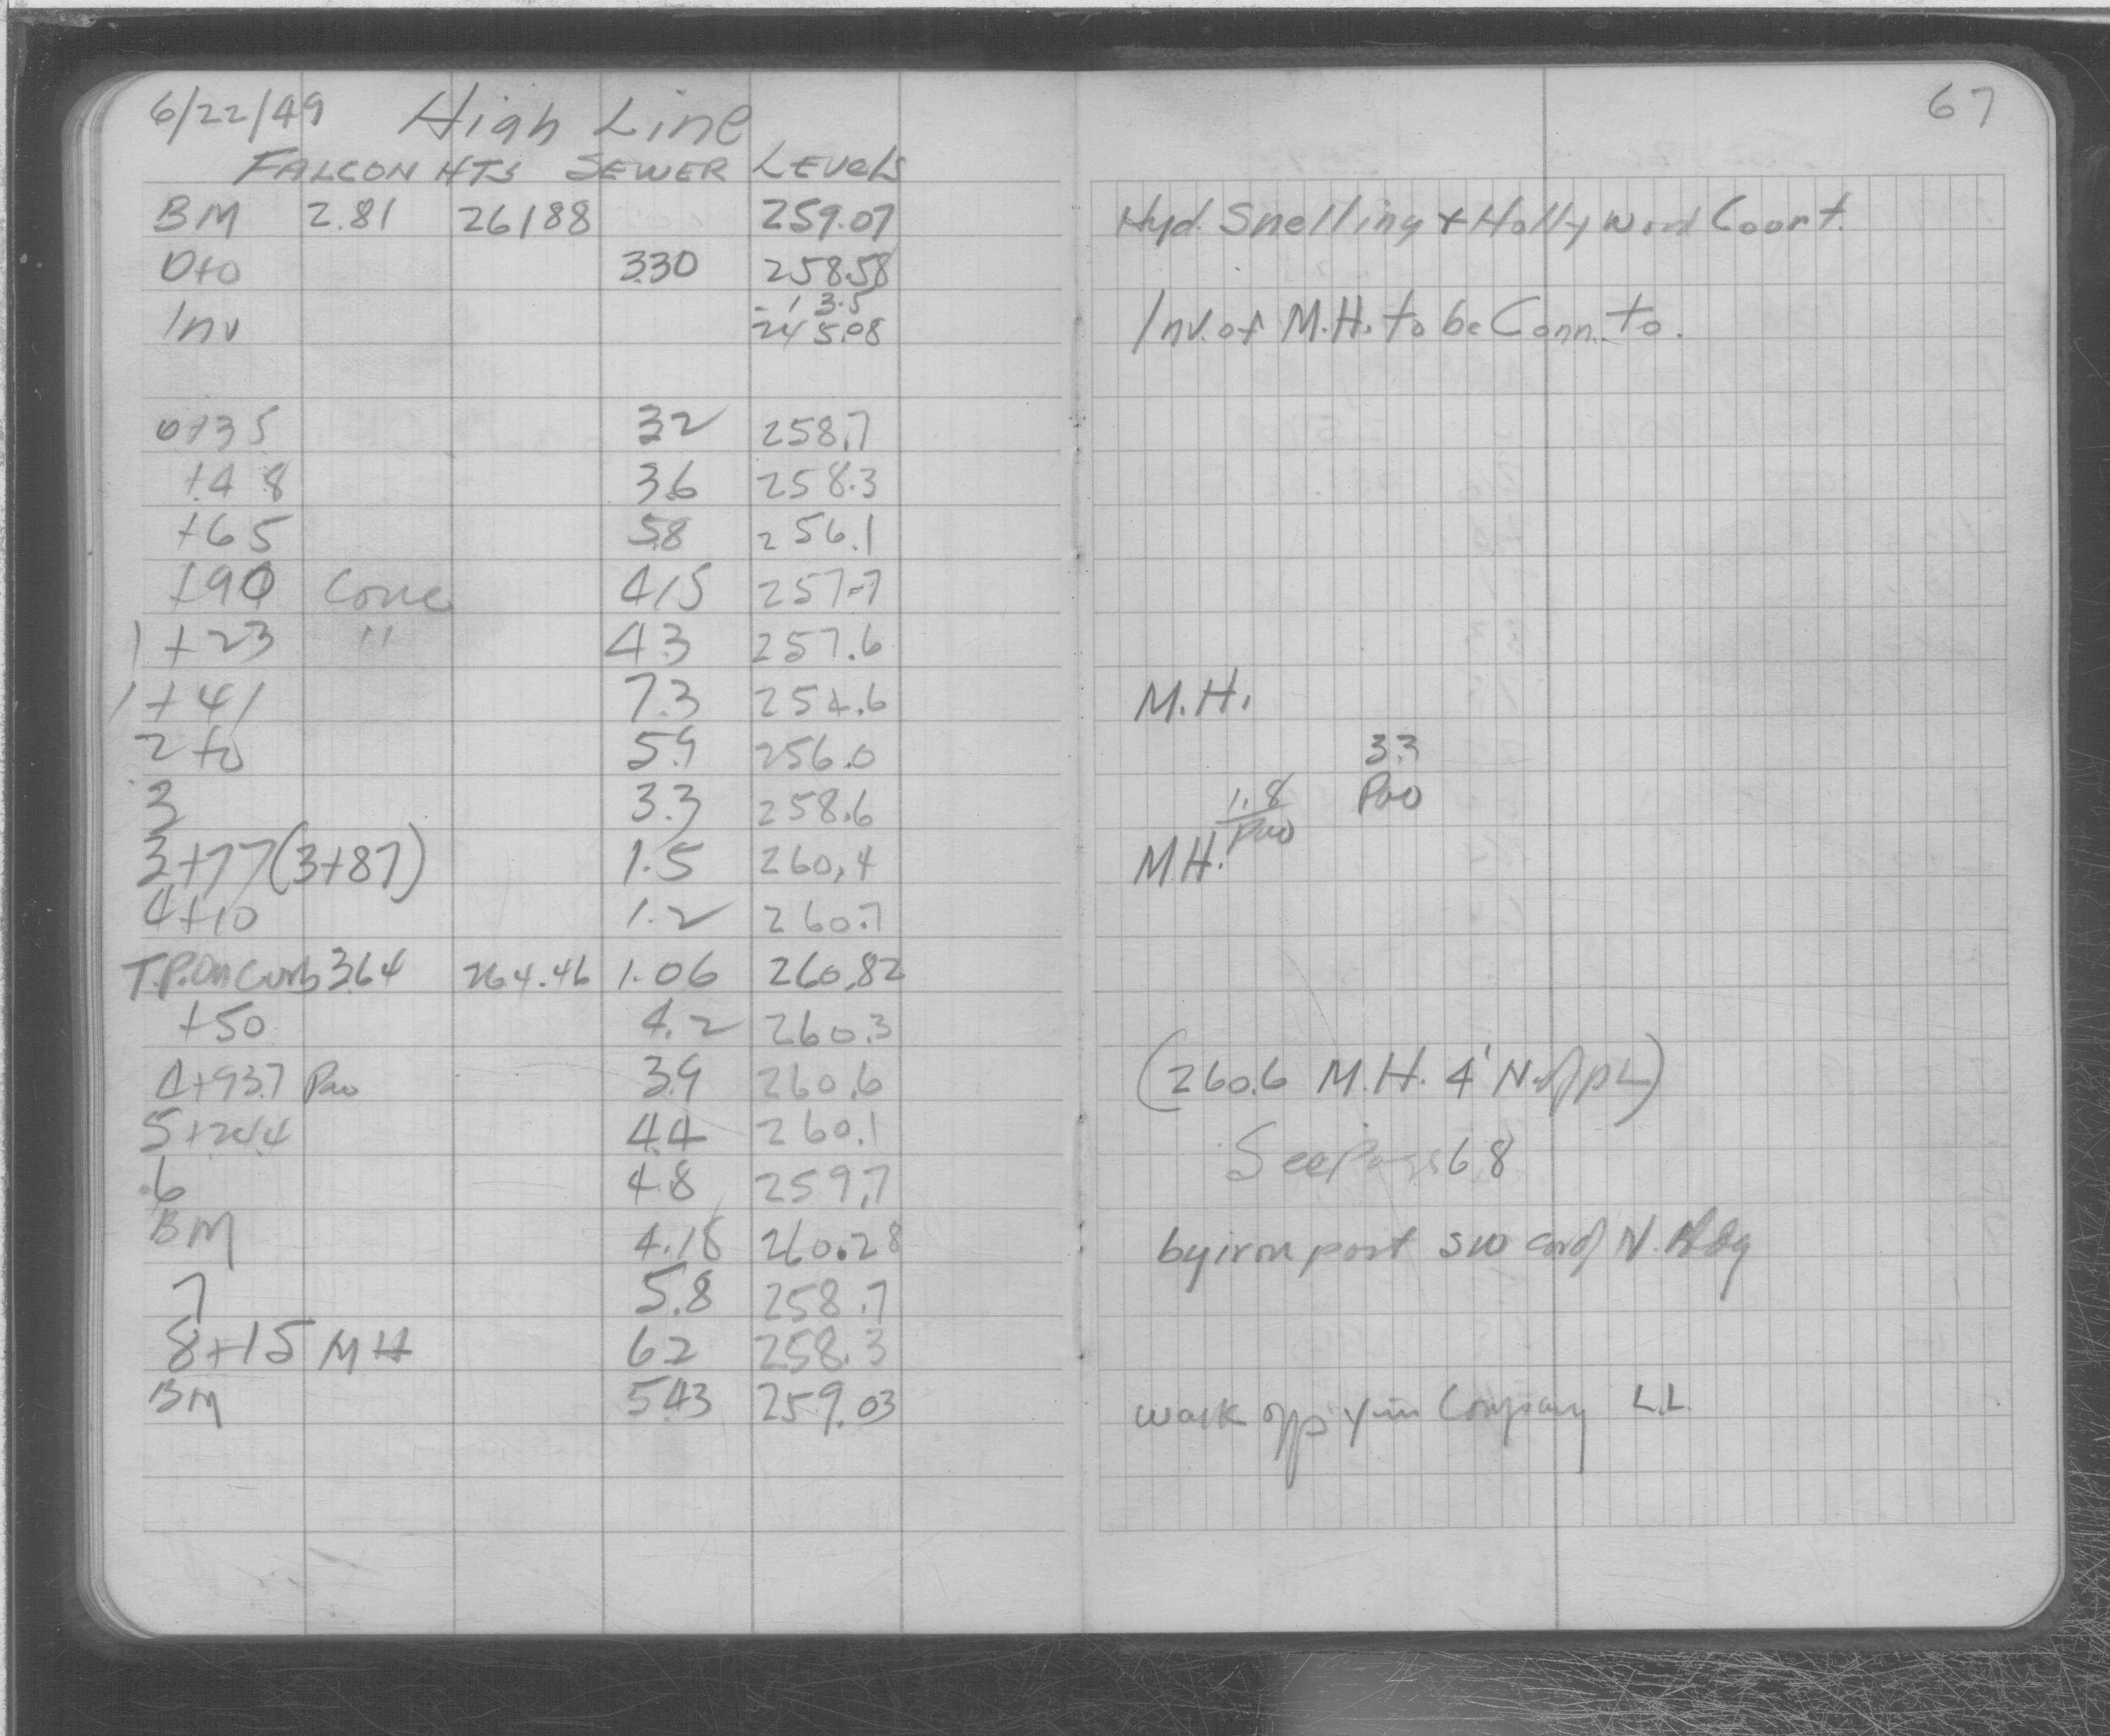 6/22/49 High Line 67
FALCON HTS SEWER LEVELS
BM 2.81 261 88 259.07 Hyd. Snelling + Hollywood Court.
0+0 3.30 258.58
- 1 3.5
Inv 245.08 Inv. of M.H. to be Conn. to.
0+35 3.2 258.7
+48 3.6 258.3
+65 5.8 256.1
+90 Conc 4.15 257.7
1+23 " 4.3 257.6
1+41 7.3 254.6 M.H.
2+0 5.9 256.0 3.3
3 3.3 258.6 1.8
3+77 (3+87) 1.5 260.4 M.H.
4+10 1.2 260.7
T.P. On Curb 3.64 264.46 1.06 260.82
+50 4.2 260.3
4+93.7 3.9 260.6 (260.6 M.H. 4' N. of PL)
5+24.4 4.4 260.1 See Page 68
6 4.8 259.7
BM 4.18 260.28 by iron post SW cor of N. Bldg
7 5.8 258.7
8+15 MH 6.2 258.3
BM 5.43 259.03 walk opp Company L.L.